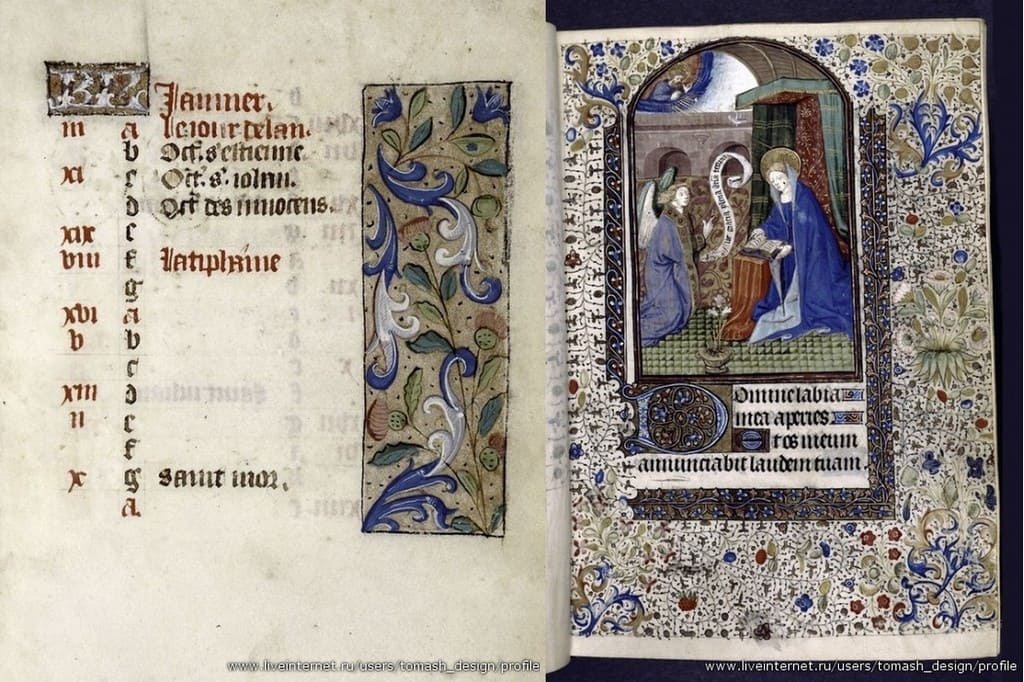 KL
Januier.
iii a le iour de lan.
b Oct. s. estienne
xi c Oct. s. iohn.
d Oct des innocens.
xix e
viii f
g
xvi a
v b
c
xiii d
ii e
f
x g saint mor.
a.
aue maria gracia
Domine labia
mea aperies
Et os meum
annunciabit laudem tuam.
www.liveinternet.ru/users/tomash_design/profile
www.liveinternet.ru/users/tomash_design/profile